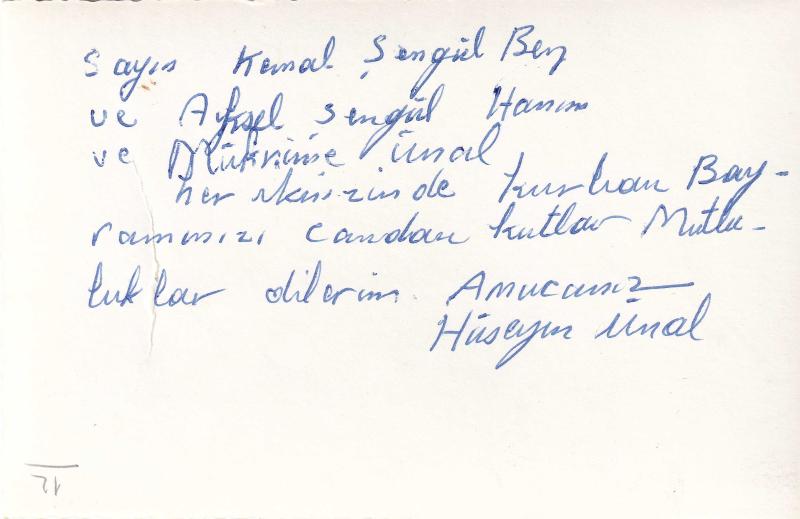 Sayın Kemal Şengül Bey
ve Aysel Şengül Hanım
ve Mükrime Ünal
her ikinizinde Kurban Bay-
ramınızı candan kutlar Mutlu-
luklar dilerim. Amucanız
Hüseyin Ünal